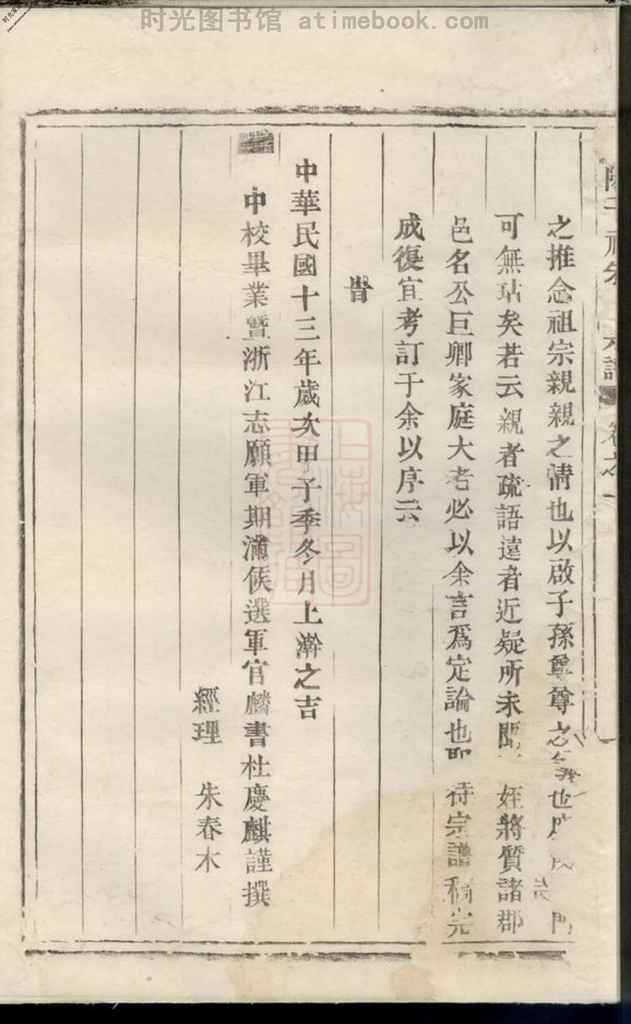 时光图书馆 atimebook.com
之推念祖宗親親之情也以啟子孫尊尊之義也
可無玷矣若云親者疏語遠者近疑所未 姪將質諸郡
邑名公巨卿家庭大老必以余言為定論也 待宗譜稿完
成復宜考訂于余以序云
旹
中華民國十三年歲次甲子季冬月上澣之吉
中校畢業暨浙江志願軍期滿候選軍官麟書杜慶麒謹撰
經理 朱春木